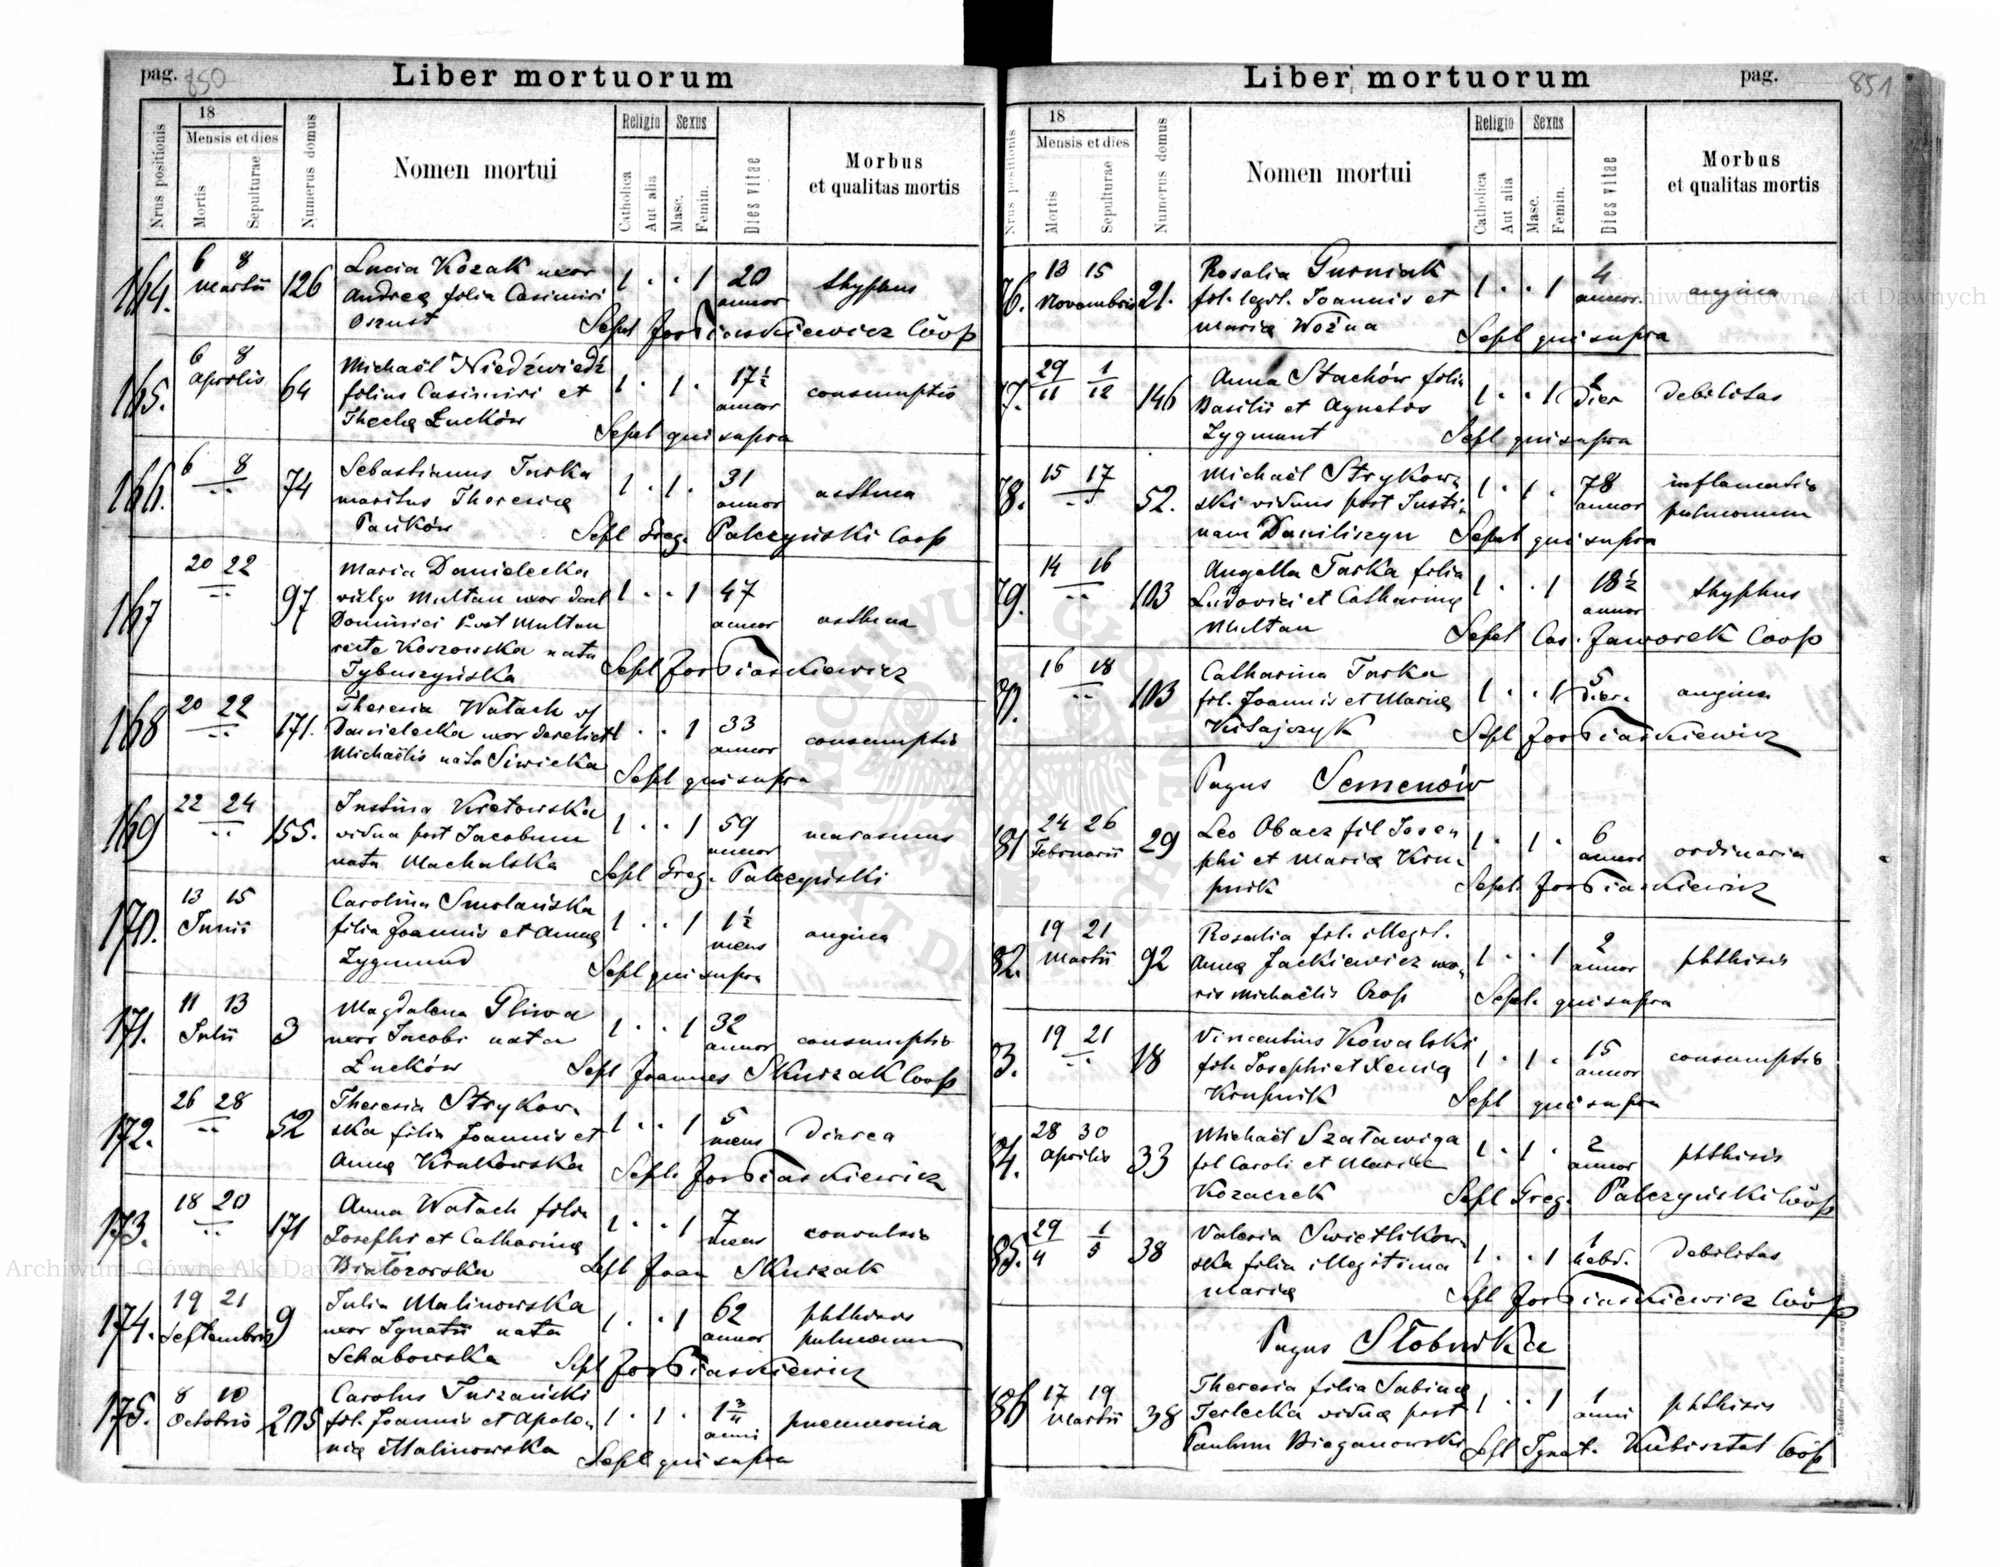 pag. 850
Liber mortuorum
Nrus positionis
18
Mensis et dies
Mortis
Sepulturae
Numerus domus
Nomen mortui
Religio
Catholica
Aut alia
Sexus
Masc.
Femin.
Dies vitae
Morbus
et qualitas mortis
164. 6 8 Martii 126 Lucia Kozak uxor 1 . . 1 20 annor thyphus
Andreæ filia Casimiri
Oszust Sepel
165. 6 8 Aprilis 64 Michaël Niedźwiedź 1 . 1 . 17½ annor consumptio
filius Casimiri et
Theclæ Łucków Sepel qui supra
166. 6 8 -..- 74 Sebastianus Turka 1 . 1 . 31 annor asthma
maritus Theresiæ
Pańków Sepl Greg. Palczyński Coop
167 20 22 -..- 97 Maria Danielecka 1 . . 1 47 annor asthma
vulgo Multan uxor
Dominici Multan
recte Korzowska nata
Tybuszyńska Sepl
168 20 22 -..- 171. Theresia Watach 1 . . 1 33 annor consumptio
Danielecka uxor derelict
Michaëlis nata Siwicka
Sepl qui supra
169 22 24 -..- 155. Justina Kretowska 1 . . 1 59 annor marasmus
vidua post Jacobum
nata Machalska Sepl Greg. Palczyński
170. 13 15 Junii Carolina Smolańska 1 . . 1 1½ mens angina
filia Joannis et Annæ
Zygmund Sepl qui supra
171. 11 13 Julii 3 Magdalena Gliwa 1 . . 1 32 annor consumptio
uxor Jacobi nata
Łucków Sepl Joannes Skurzak Coop
172. 26 28 -..- 52 Theresia Strykow- 1 . . 1 5 mens diarea
ska filia Joannis et
Annæ Krukowska Sepl.
173. 18 20 -..- 171 Anna Watach filia 1 . . 1 7 mens convulsio
Josephi et Catharinæ
Białozorska Sepl Joan Skurzak
174. 19 21 Septembris 9 Julia Malinowska 1 . . 1 62 annor phthisis
uxor Ignatii nata pulmonum
Schabowska Sepl
175. 8 10 Octobris 205 Carolus Turzański 1 . 1 . 1¾ anni pneumonia
fil. Joannis et Apolo-
niæ Malinowska Sepl qui supra
Liber mortuorum
pag. 851
Nrus positionis
18
Mensis et dies
Mortis
Sepulturae
Numerus domus
Nomen mortui
Religio
Catholica
Aut alia
Sexus
Masc.
Femin.
Dies vitae
Morbus
et qualitas mortis
76. 13 15 Novembris 21. Rosalia Gurniak 1 . . 1 4 annor. angina
fil. legit. Joannis et
Mariæ Woźna Sepl qui supra
77. 29/11 1/12 146 Anna Stachów filia 1 . . 1 dier debilitas
Basilii et Agnetis
Zygmunt Sepl qui supra
78. 15 17 52. Michaël Strykow- 1 . 1 . 78 annor inflamatio
ski viduus post Justi- pulmonum
nam Daniliszyn Sepel qui supra
79. 14 16 -..- 103 Angella Turka filia 1 . . 1 18½ annor thyphus
Ludovici et Catharinæ
Multan Sepel Cas. Jaworek Coop
16 18 -..- 103 Catharina Turka 1 . . 1 5 dier. angina
fil. Joannis et Mariæ
Sepl
Pagus Semenów
181 24 26 Februarii 29 Leo Obacz fil Jose- 1 . 1 . 6 annor ordinaria
phi et Mariæ Kru-
pnik Sepl.
82. 19 21 Martii 92 Rosalia fil. illegit. 1 . . 1 2 annor phthisis
Annæ Jackiewicz uxo-
ris Michaëlis Sepel. qui supra
83. 19 21 -..- 18 Vincentius Kowalski 1 . 1 . 15 annor consumptio
fil. Josephi et Xeniæ
Krupnik Sepl qui supra
84. 28 30 Aprilis 33 Michaël Szatawiga 1 . 1 . 2 annor phthisis
fil Caroli et Mariæ
Kozaczek Sepl Greg. Palczyński Coop
85. 29/4 1/5 38 Valeria Swietlikow- 1 . . 1 1 hebd. debilitas
ska filia illegitima
Mariæ Sepl
Pagus Słobudka
86 17 19 Martii 38 Theresia filia Sabinæ 1 . . 1 1 anni phthisis
Terlecka viduæ post
Paulum Bieganowski Sepl Ignat. Kubisztal Coop
Archiwum Główne Akt Dawnych